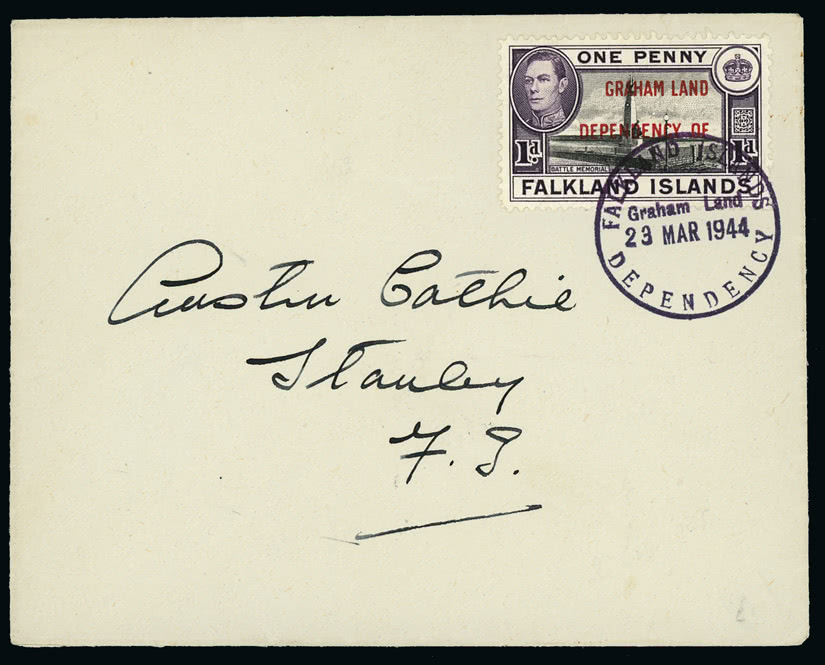 ONE PENNY
GRAHAM LAND
DEPENDENCY OF
1d. 1d
BATTLE MEMORIAL
FALKLAND ISLANDS
FALKLAND ISLANDS
Graham Land
23 MAR 1944
DEPENDENCY
Austin Cathie
Stanley
F.I.